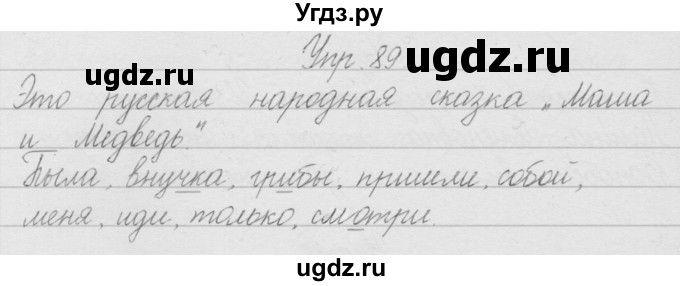 Угдз.ру
ugdz.ru
ugdz.ru
Упр. 89
Это русская народная сказка „Маша
и Медведь“.
Была, внучка, грибы, пришли, собой,
меня, иди, только, смотри.
ugdz.ru
ugdz.ru